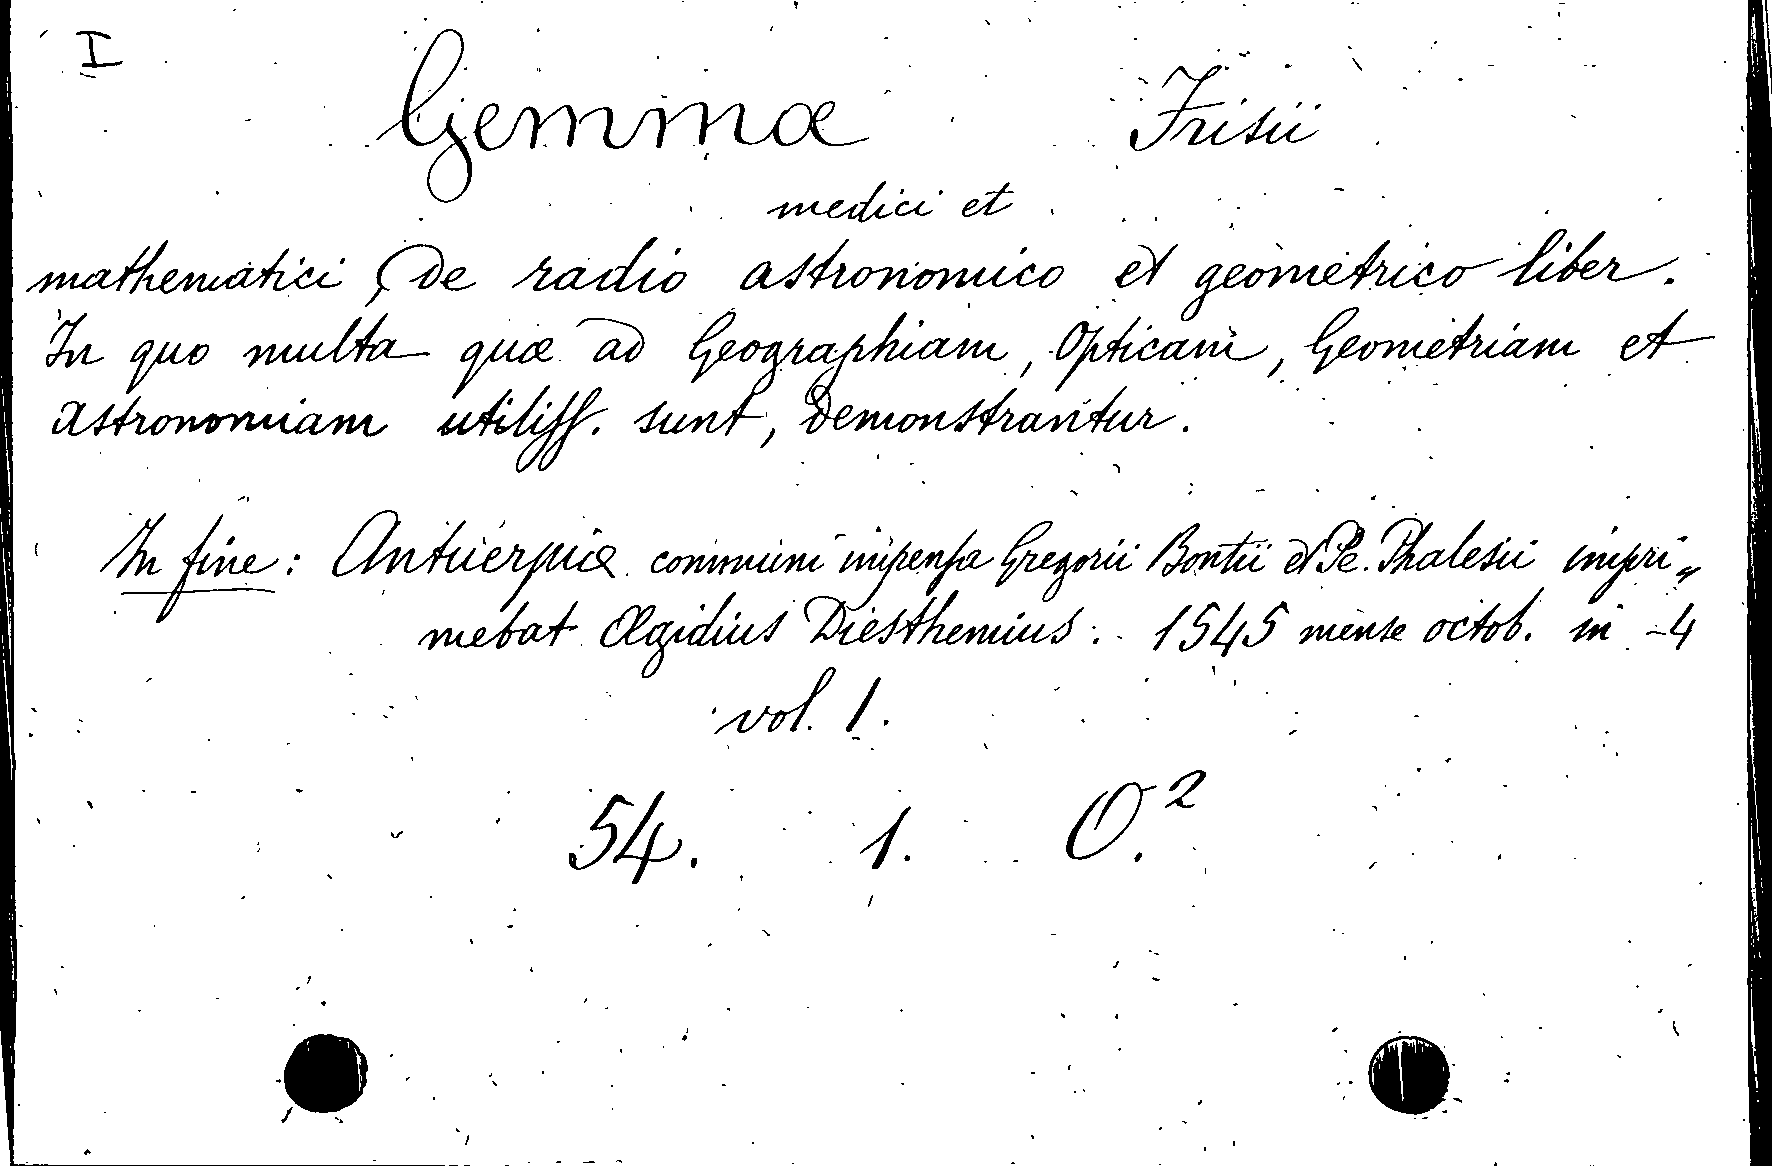 I
Gemmæ Frisii
medici et
mathematici, De radio astronomico et geometrico liber.
In quo multa quæ ad Geographiam, Opticam, Geometriam et
Astronomiam utiliss. sunt, Demonstrantur.
In fine: Antuerpiæ communi impensa Gregorii Bontii et Pe. Phalesii impri„
mebat Ægidius Diesthemius. 1545 mense octob. in -4
vol. 1.
54. 1. O.²